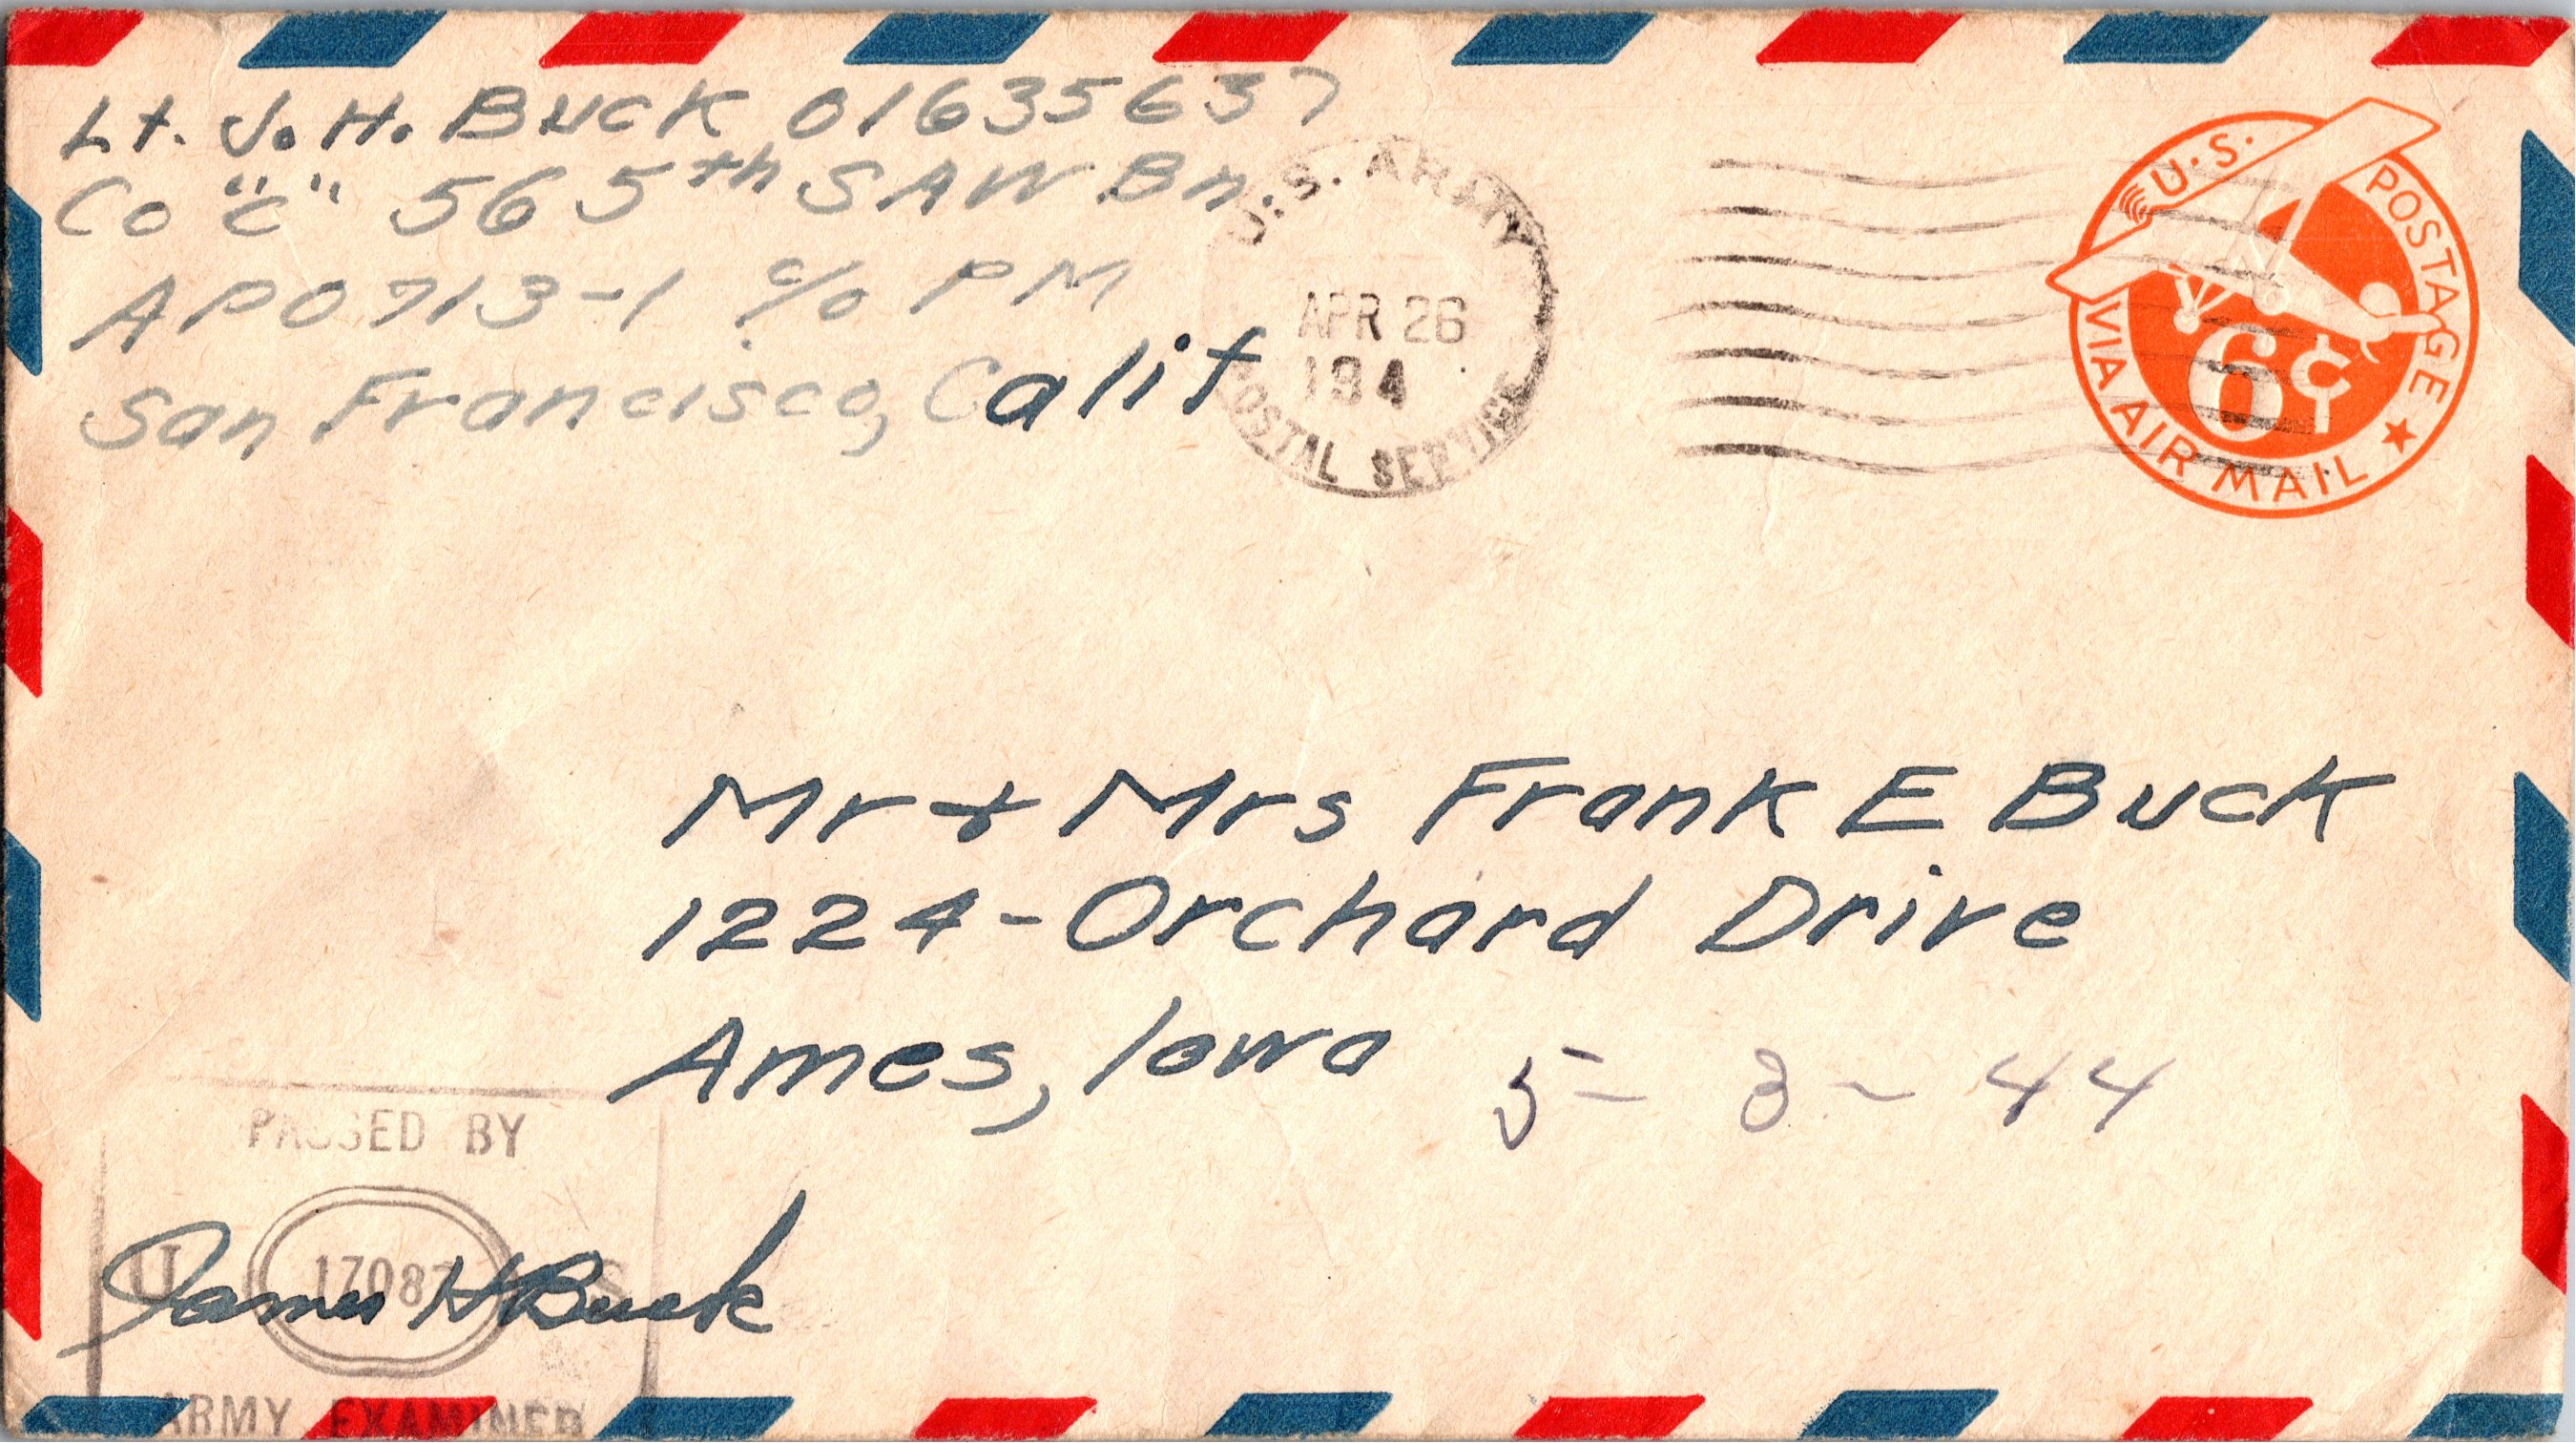 Lt. J. H. Buck 01635637
Co "C" 565th SAW Bn.
APO 713-1 c/o PM
San Francisco, Calif
U.S. ARMY
APR 26
194
POSTAL SERVICE
U.S. POSTAGE
6¢
VIA AIR MAIL
Mr & Mrs Frank E Buck
1224-Orchard Drive
Ames, Iowa
5-3-44
PASSED BY
U 17087 S
James H Buck
ARMY EXAMINER